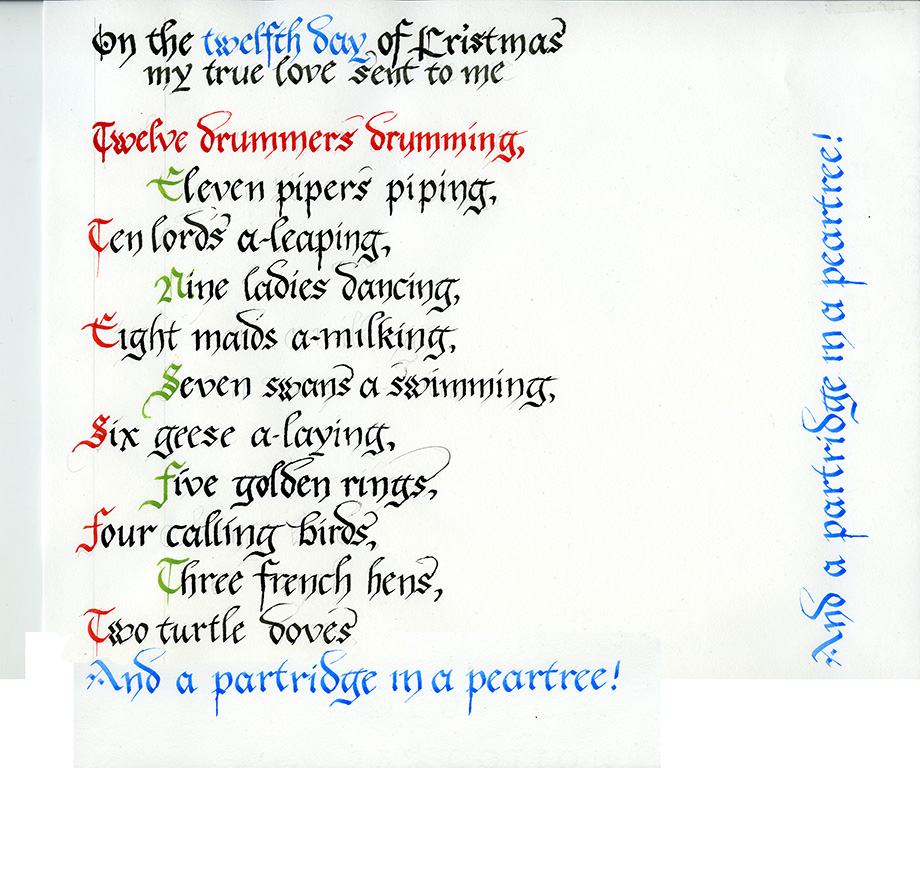 On the twelfth day of Cristmas
my true love sent to me
Twelve drummers drumming,
Eleven pipers piping,
Ten lords a-leaping,
Nine ladies dancing,
Eight maids a-milking,
Seven swans a swimming,
Six geese a-laying,
Five golden rings,
Four calling birds,
Three french hens,
Two turtle doves
And a partridge in a peartree!
And a partridge in a peartree!